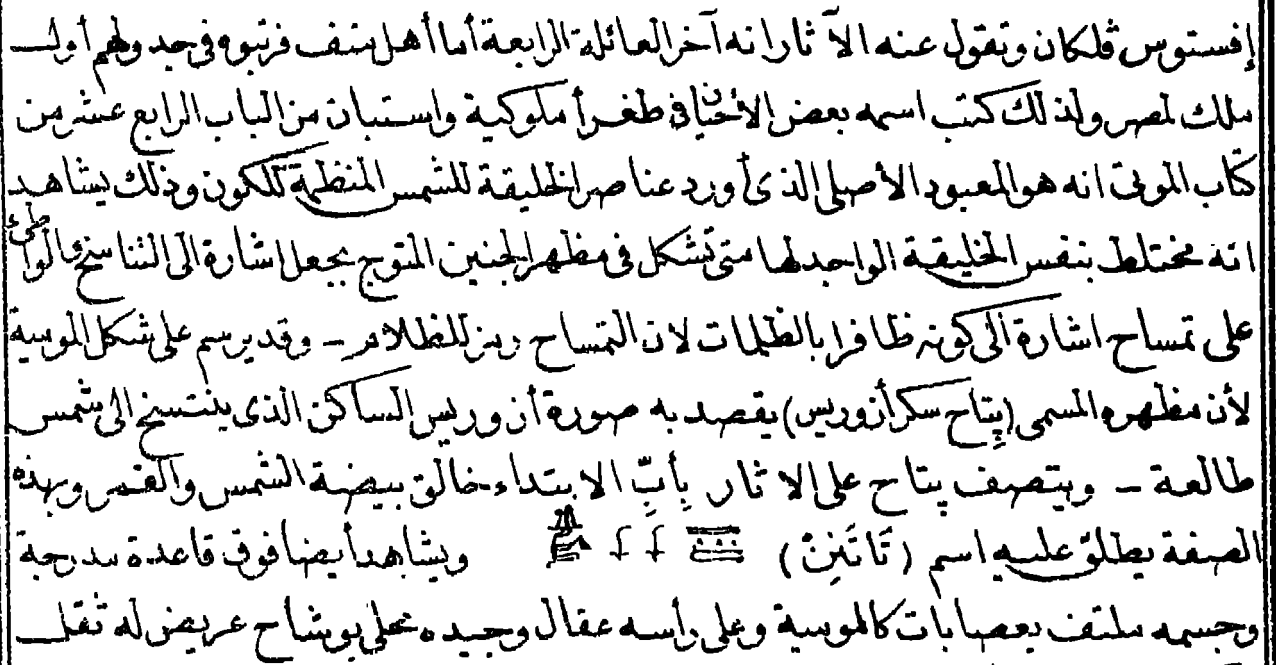 إفستوس ڤلكان وتقول عنه الآثار انه آخر العائلة الرابعة أما أهل منف فرتبوه في جدولهم أول
ملك لمصر ولذلك كتب اسمه بعض الأحيان في طغرأ ملوكية واستبان من الباب الرابع عشر من
كتاب الموتى انه هو المعبود الأصلى الذى أورد عناصر الخليقة للشمس المنظمة للكون وذلك يشاهد
انه مختلط بنفس الخليقة الواجد لها متى تشكل فى مظهر الجنين المتوج بجعل اشارة الى التناسخ والواطئ
على تمساح اشارة الى كونه ظافرا بالظلمات لان التمساح رمز للظلام – وقد يرسم على شكل الموسية
لأن مظهره المسمى (پتاح سكر أزوريس) يقصد به صورة أزوريس الساكن الذى ينتسخ الى شمس
طالعة – ويتصف پتاح على الاثار بِأَبِّ الابتداء خالق بيضة الشمس والقمر وبهذه
الصفة يطلق عليه اسم (تَاتَنِنْ) ويشاهد أيضا فوق قاعدة مدرجة
وجسمه ملتف بعصابات كالموسية وعلى رأسه عقال وجيده محلى بوشاح عريض له ثقل